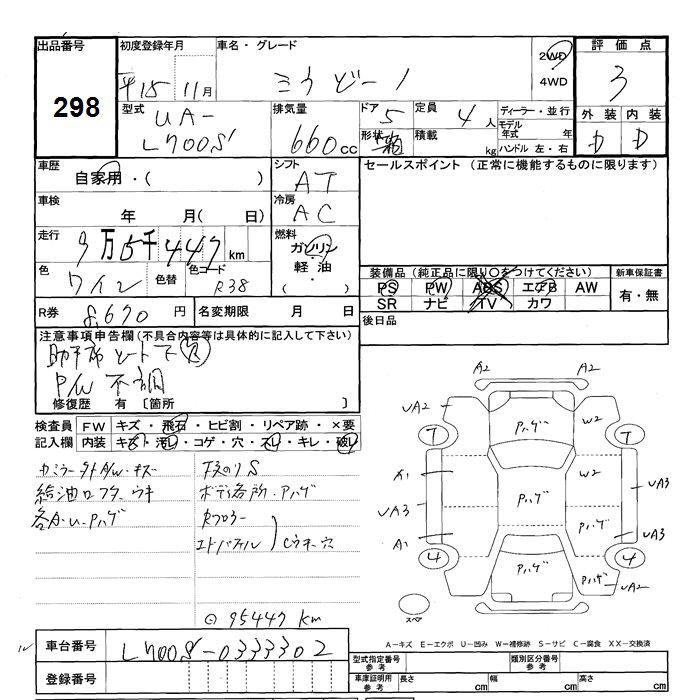 出品番号
298
初度登録年月
平15 11月
車名・グレード
ミラ ジーノ
2WD
4WD
評価点
3
外装 内装
D D
型式
UA-
L700S
排気量
660cc
ドア 5
定員 4人
形状 箱
積載 kg
ディーラー・並行
モデル年式 年
ハンドル 左・右
車歴
自家用・( )
シフト
AT
セールスポイント (正常に機能するものに限ります)
車検
年 月( 日)
冷房
AC
走行
9万5千447km
燃料
ガソリン
軽油
色
ワイン
色替
色コード
R38
装備品(純正品に限り○をつけてください)
PS PW ABS エアB AW
SR ナビ TV カワ
新車保証書
有・無
R券 8,670円
名変期限 月 日
後日品
注意事項申告欄(不具合内容等は具体的に記入して下さい)
P/W 不調
修復歴 有〔箇所 〕
検査員 FW キズ・飛石・ヒビ割・リペア跡・×要
記入欄 内装 キズ・汚れ・コゲ・穴・スレ・キレ・破れ
各A・U・Pハゲ
下まわりS
ボディ各所・Pハゲ
95447 km
A2 A2
UA2 Pハゲ W2
7 7
A1 W2
UA3 Pハゲ UA3
A1 Pハゲ UA3
4 4
Pハゲ Pハゲ UA2
スペア
A－キズ E－エクボ U－凹み W－補修跡 S－サビ C－腐食 XX－交換済
車台番号
L700S-0333302
登録番号
型式指定番号 参考
類別区分番号 参考
車庫証明用 参考
長さ cm 幅 cm 高さ cm